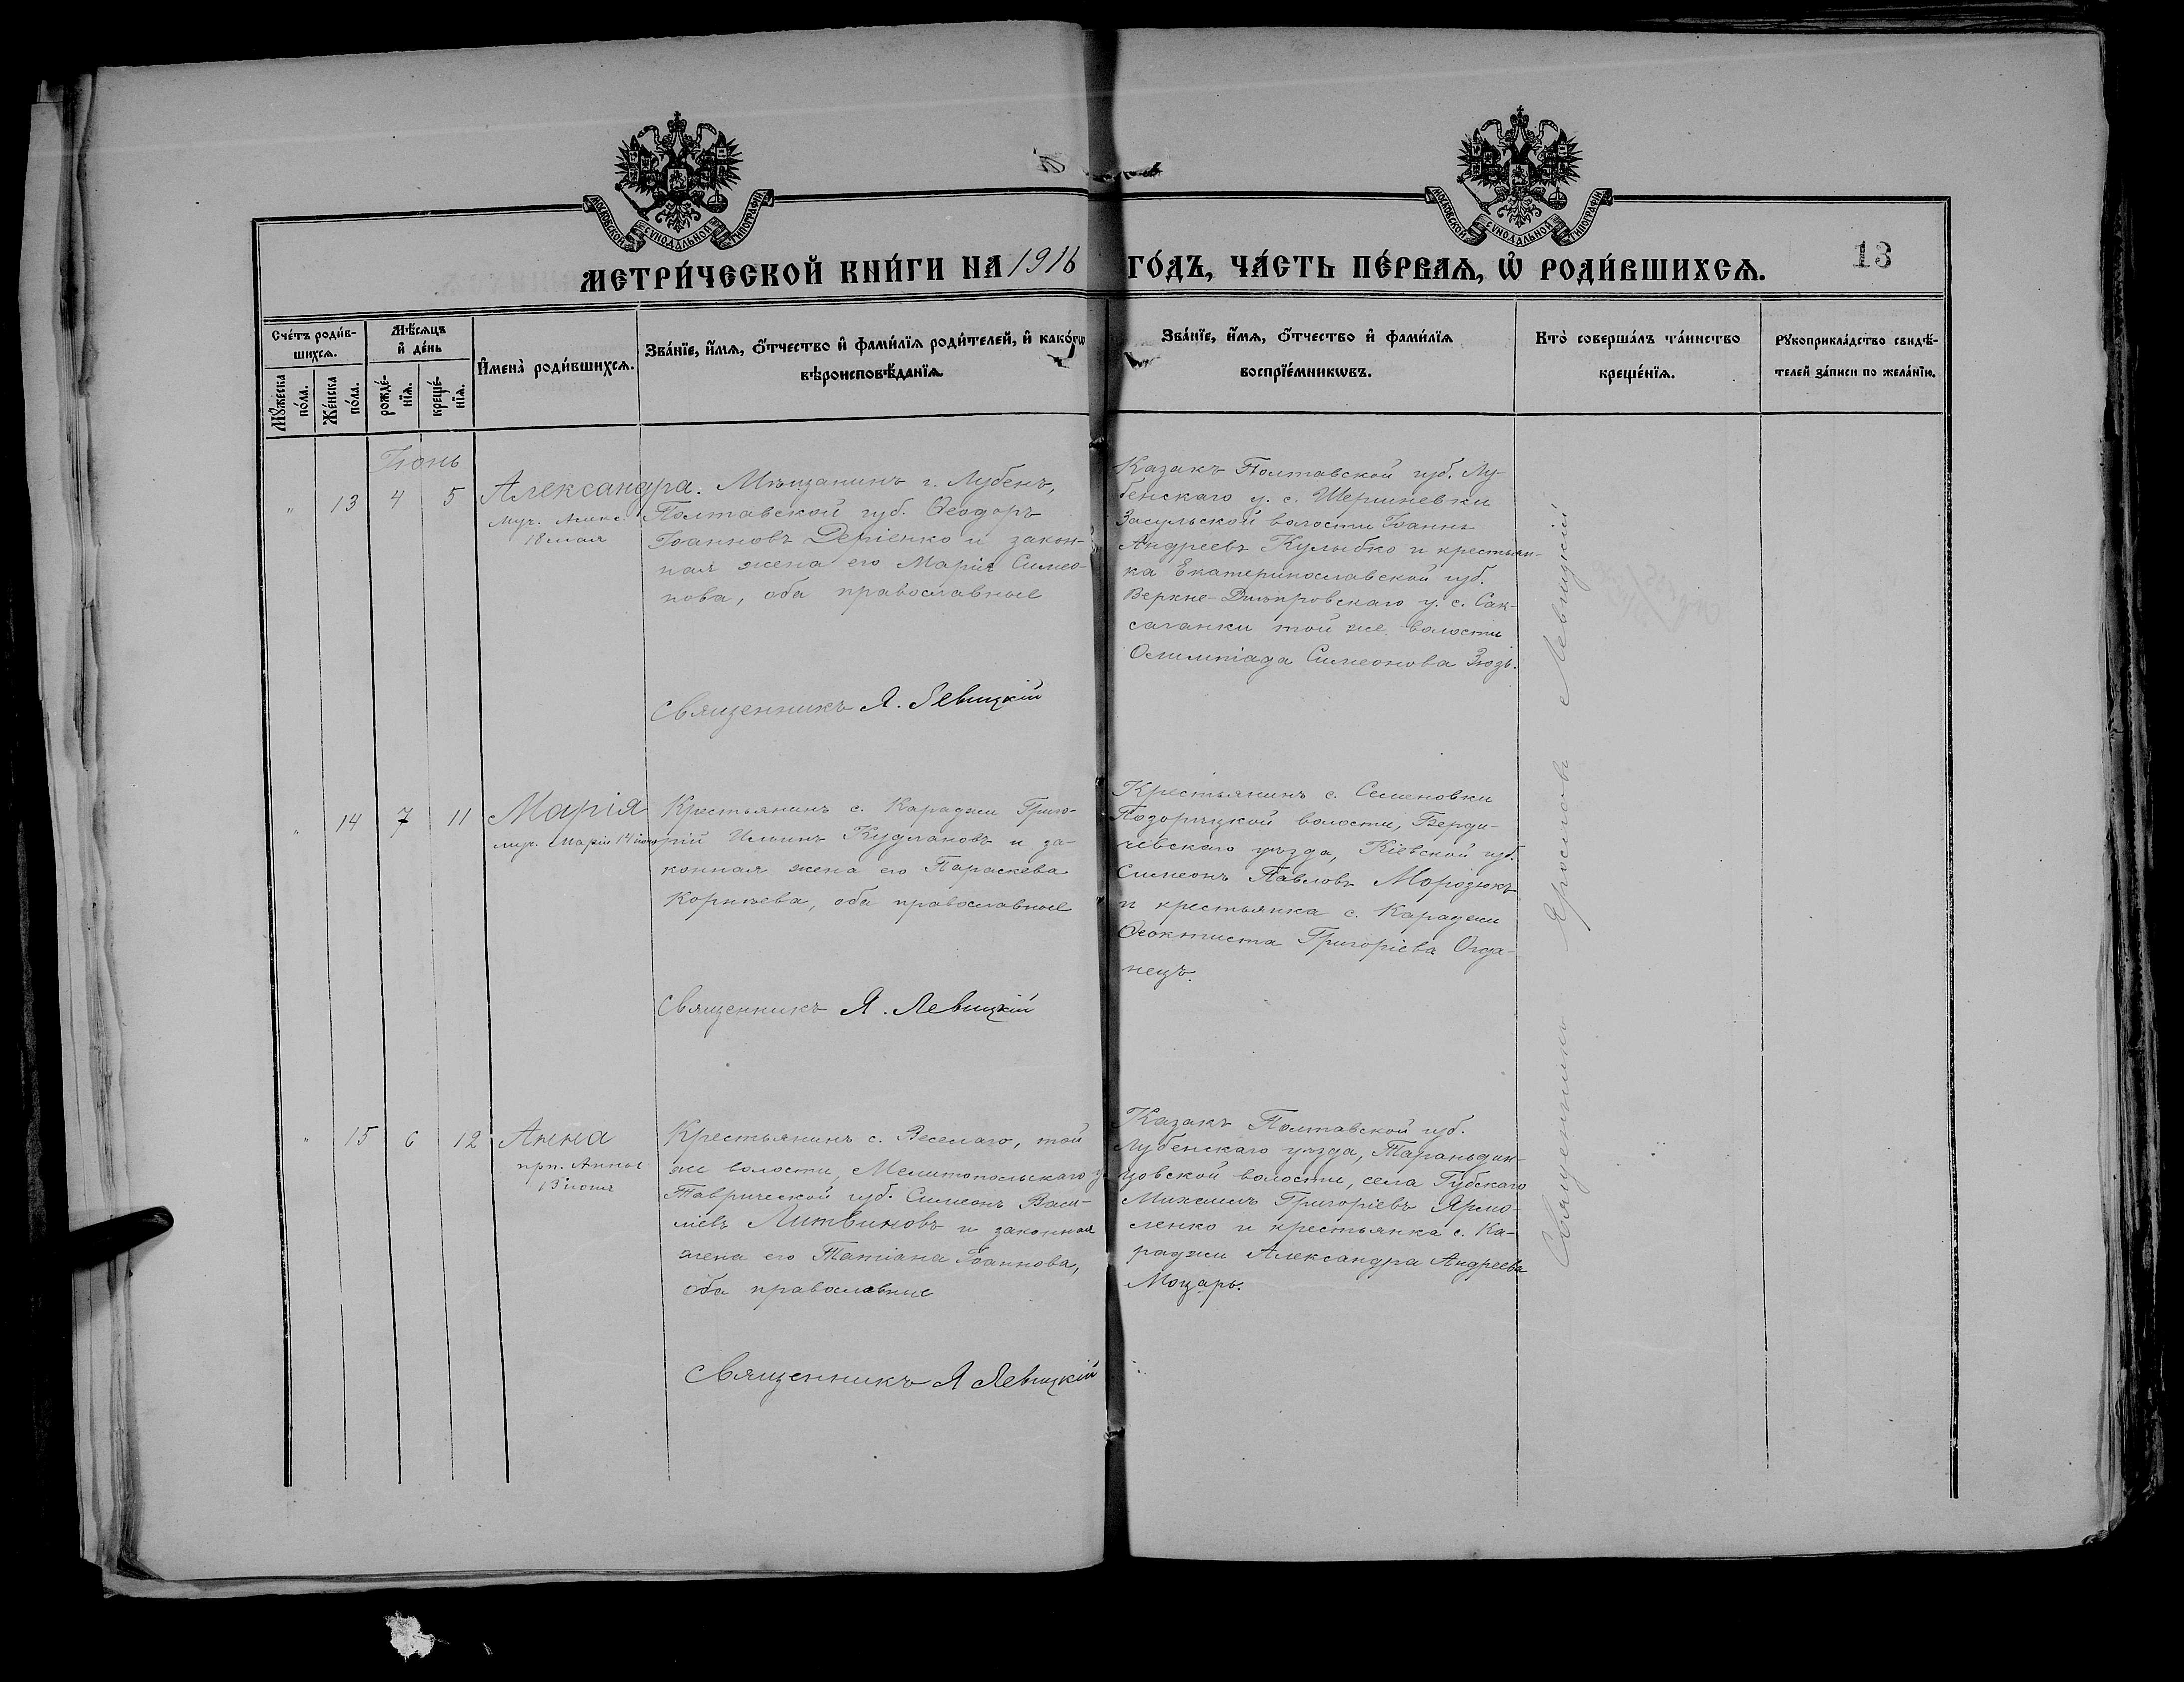 МОСКОВСКОЙ СѴНОДАЛЬНОЙ ТИПОГРАФІИ
МОСКОВСКОЙ СѴНОДАЛЬНОЙ ТИПОГРАФІИ
МЕТРИ́ЧЕСКОЙ КНИ́ГИ НА 1916 ГО́ДЪ, ЧА́СТЬ ПЕ́РВАѦ, Ѡ҆ РОДИ́ВШИХСѦ.
13
Сче́тъ роди́в-
шихсѧ.
Мꙋ́жеска
по́ла.
Же́нска
по́ла.
Мѣ́сѧцъ
и҆ де́нь
рожде́-
нїѧ.
креще́-
нїѧ.
И҆мена̀ роди́вшихсѧ.
Зва́нїе, и҆́мѧ, ѻ҆́тчество и҆ фами́лїѧ роди́телей, и҆ како́гѡ
вѣроисповѣ́данїѧ.
Зва́нїе, и҆́мѧ, ѻ҆́тчество и҆ фами́лїѧ
воспрїе́мникѡвъ.
Кто̀ соверша́лъ та́инство
креще́нїѧ.
Рꙋкоприкла́дство свидѣ́-
телей за́писи по жела́нїю.
Іюнь
" 13 4 5
Александра.
муч. Алекс.
18 мая
Мѣщанинъ г. Лубенъ,
Полтавской губ. Ѳеодоръ
Іоанновъ Депіенко и закон-
ная жена его Марія Симео-
нова, оба православные
Священникъ Я. Левицкій
Казакъ Полтавской губ. Лу-
бенскаго у. с. Шершневки
Засульской волости Іоаннъ
Андреевъ Кулыбко и крестьян-
ка Екатеринославской губ.
Верхне-Днѣпровскаго у. с. Сак-
саганки той же волости
Олимпіада Симеонова Зюзь.
" 14 7 11
Марія
муч. Маріи 14 іюня
Крестьянинъ с. Караджи Григо-
рій Ильинъ Кудлановъ и за-
конная жена его Параскева
Корнѣева, оба православные
Священникъ Я. Левицкій
Крестьянинъ с. Семеновки
волости, Берди-
чевскаго уѣзда, Кіевской губ.
Симеонъ Павловъ Морозюкъ
и крестьянка с. Караджи
Ѳеоктиста Григоріева Огда-
нецъ.
" 15 6 12
Анна
прп. Анны
13 іюня
Крестьянинъ с. Веселаго, той
же волости, Мелитопольскаго у.
Таврической губ. Симеонъ Васи-
ліевъ Литвиновъ и законная
жена его Татіана Іоаннова,
оба православные
Священникъ Я Левицкій
Казакъ Полтавской губ.
Лубенскаго уѣзда, Тарандин-
цовской волости, села Губскаго
Михаилъ Григоріевъ Ярмо-
ленко и крестьянка с. Ка-
раджи Александра Андреева
Моцарь.
Священникъ Ярославъ Левицкій